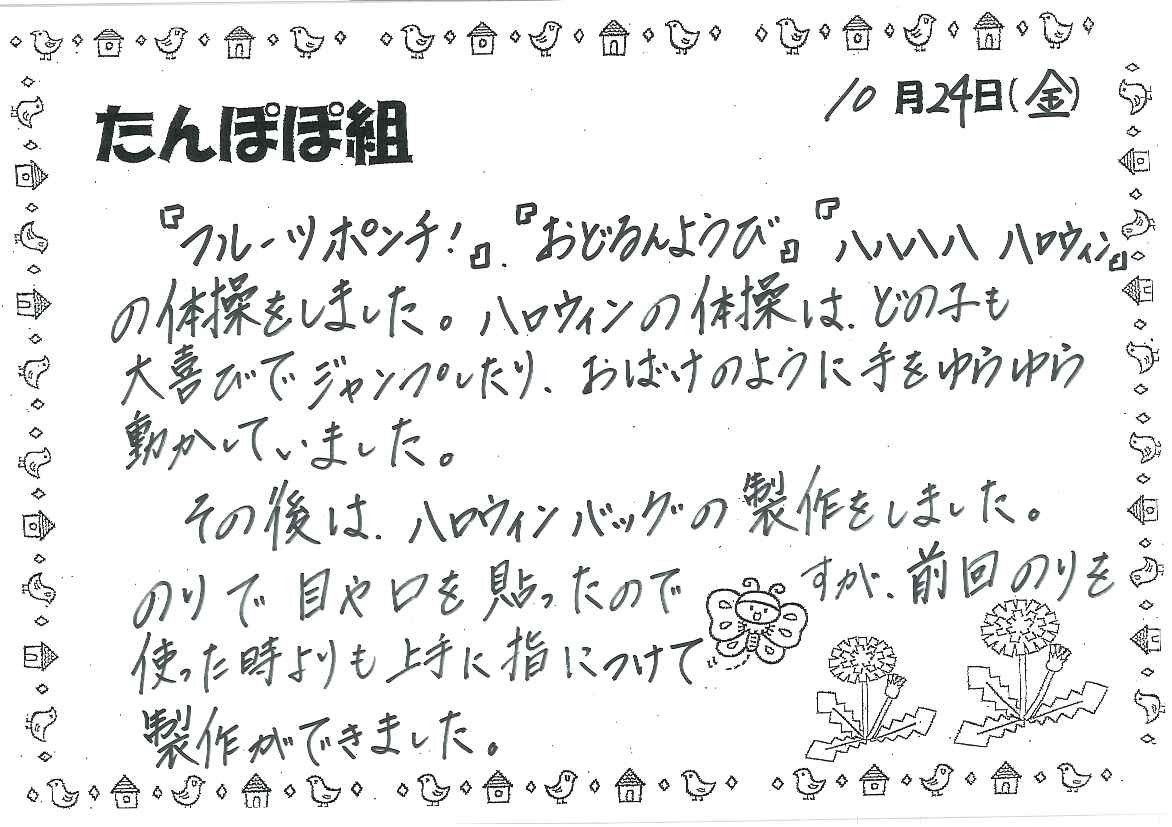 10月24日(金)
たんぽぽ組
『フルーツポンチ!』、『おどるんようび』『ハハハハ ハロウィン』
の体操をしました。ハロウィンの体操は、どの子も
大喜びでジャンプしたり、おばけのように手をゆらゆら
動かしていました。
その後は、ハロウィンバッグの製作をしました。
のりで目や口を貼ったのですが、前回のりを
使った時よりも上手に指につけて
製作ができました。